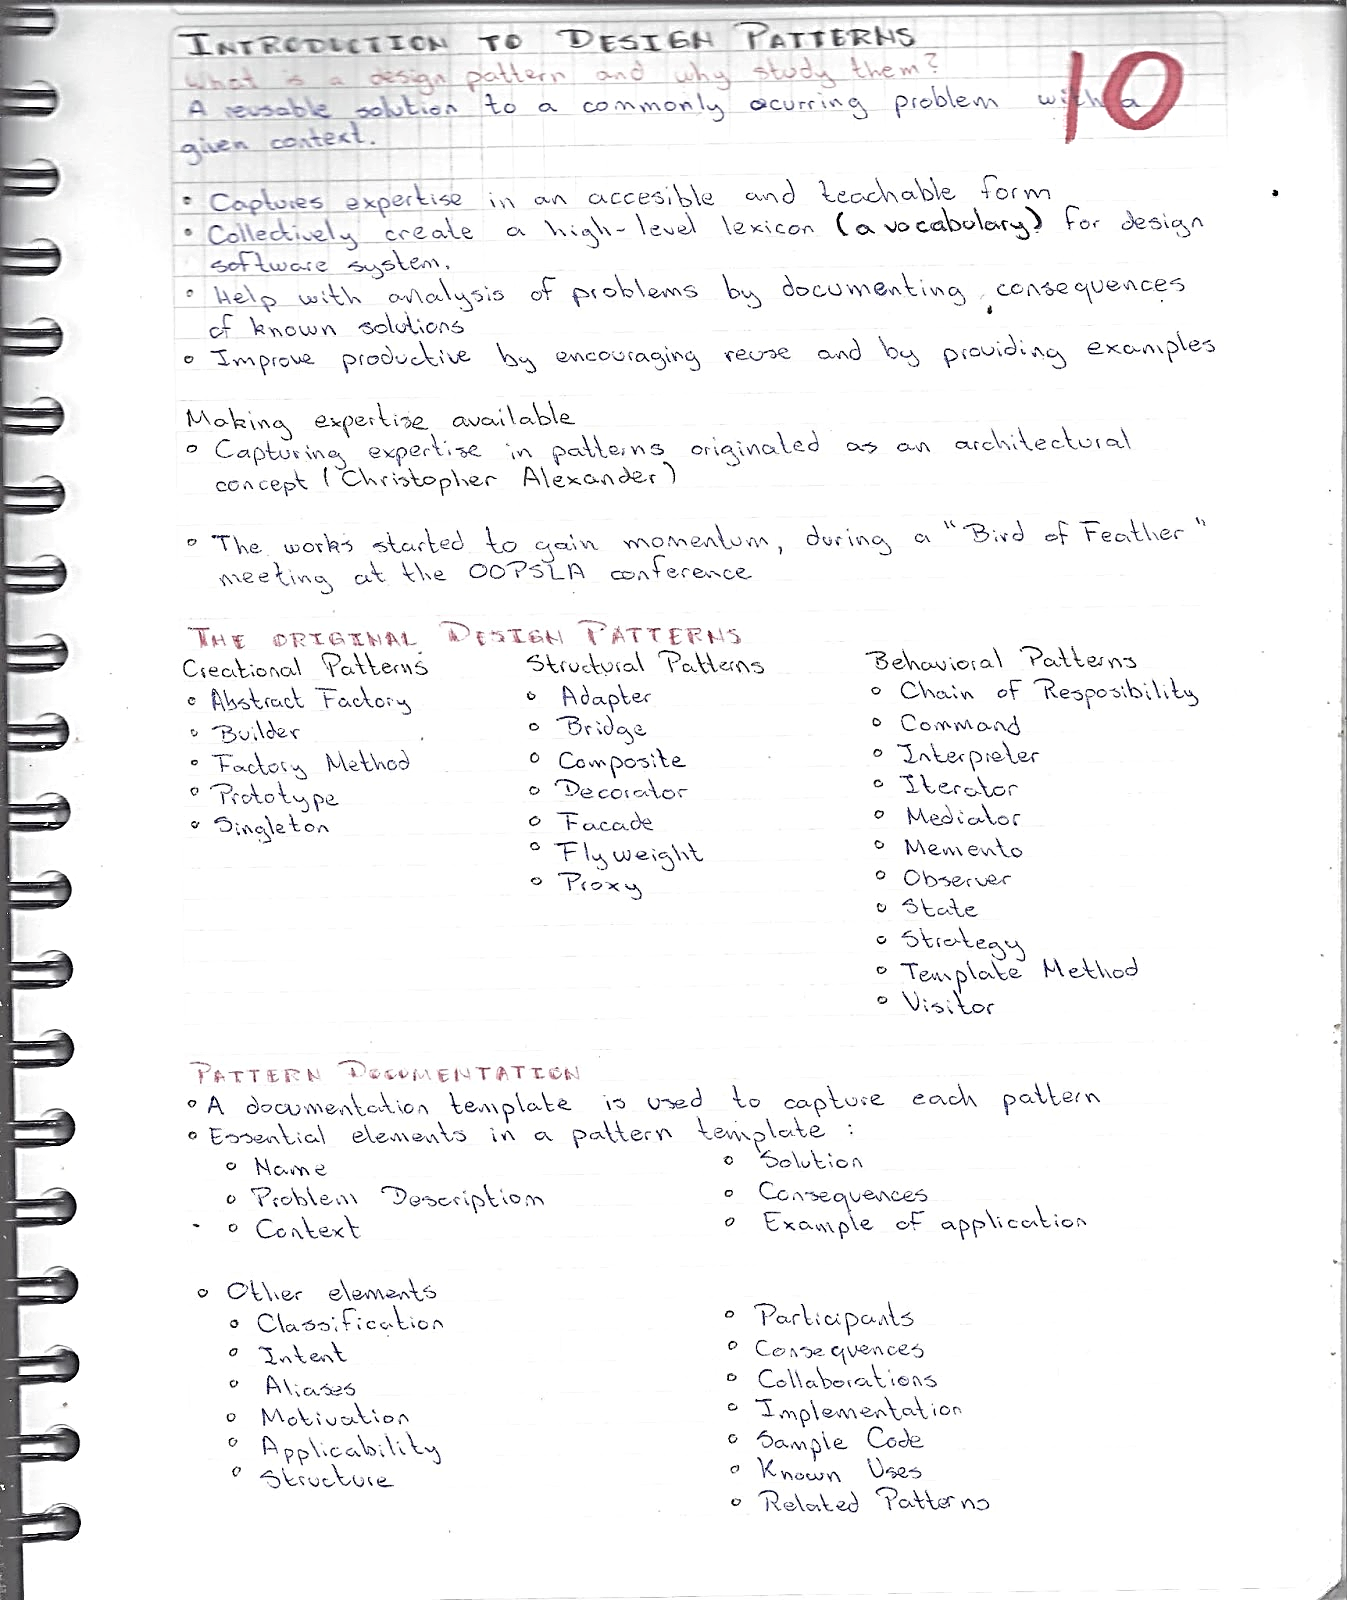 INTRODUCTION TO DESIGN PATTERNS
What is a design pattern and why study them?
10
A reusable solution to a commonly ocurring problem with a
given context.
• Captures expertise in an accesible and teachable form
• Collectively create a high-level lexicon (a vocabulary) for design
software system.
• Help with analysis of problems by documenting, consequences
of known solutions
• Improve productive by encouraging reuse and by providing examples
Making expertise available
• Capturing expertise in patterns originated as an architectural
concept (Christopher Alexander)
• The works started to gain momentum, during a "Bird of Feather"
meeting at the OOPSLA conference
THE ORIGINAL DESIGN PATTERNS
Creational Patterns
• Abstract Factory
• Builder
• Factory Method
• Prototype
• Singleton
Structural Patterns
• Adapter
• Bridge
• Composite
• Decorator
• Facade
• Flyweight
• Proxy
Behavioral Patterns
• Chain of Resposibility
• Command
• Interpreter
• Iterator
• Mediator
• Memento
• Observer
• State
• Strategy
• Template Method
• Visitor
PATTERN DOCUMENTATION
• A documentation template is used to capture each pattern
• Essential elements in a pattern template:
• Name
• Problem Description
• Context
• Solution
• Consequences
• Example of application
• Other elements
• Classification
• Intent
• Aliases
• Motivation
• Applicability
• Structure
• Participants
• Consequences
• Collaborations
• Implementation
• Sample Code
• Known Uses
• Related Patterns